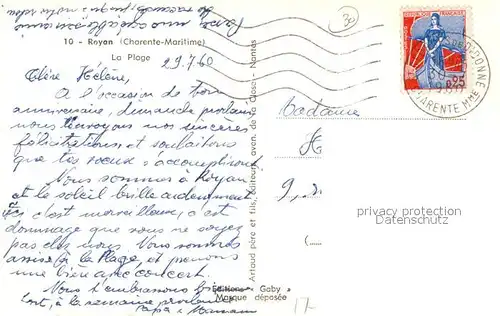 10 - Royan (Charente-Maritime)
La Plage
29.7.60
Chère Hélène,
A l'occasion de ton
anniversaire, dimanche prochain
nous t'envoyons nos sincères
félicitations et souhaitons
que tes vœux s'accomplissent
Nous sommes à Royan
et le soleil brille ardemment
ici c'est merveilleux, c'est
dommage que vous ne soyez
pas chez nous. Nous sommes
assis à la Plage, et prenons
une bière avec concert.
Nous t'embrassons bien
fort, à la semaine prochaine
Papa & Maman
Artaud père et fils, éditeurs
Nantes
Éditions « Gaby »
Marque déposée
30
RÉPUBLIQUE FRANÇAISE
0,25
DE DIDONNE
CHARENTE MME
Madame
H
9,
privacy protection
Datenschutz
17-